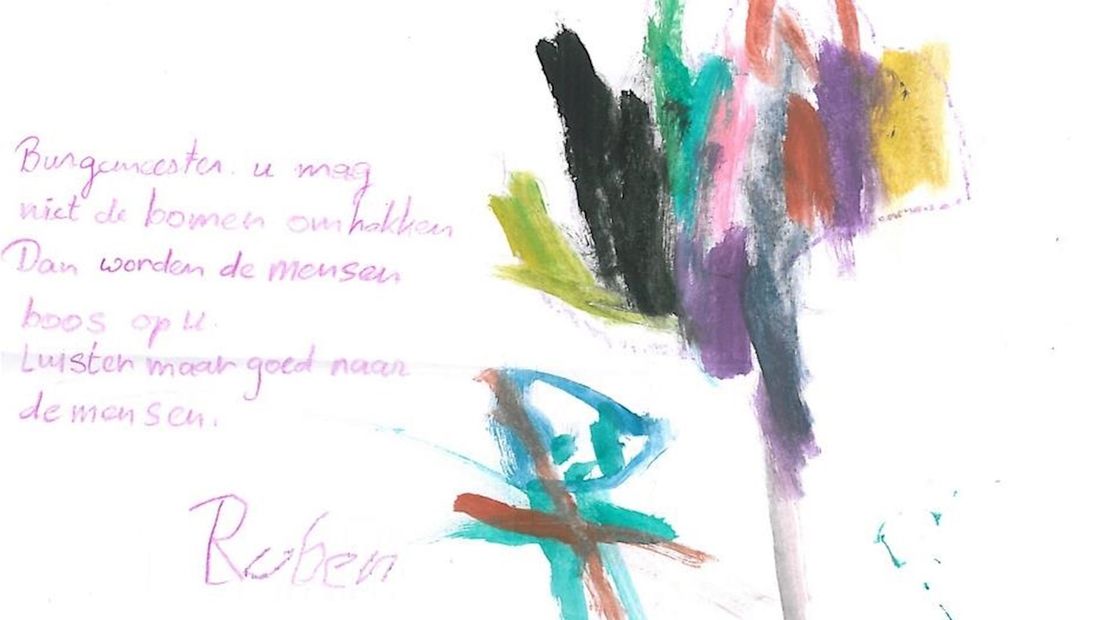 Burgemeester. u mag
niet de bomen omhakken
Dan worden de mensen
boos op u.
Luister maar goed naar
de mensen.
Ruben